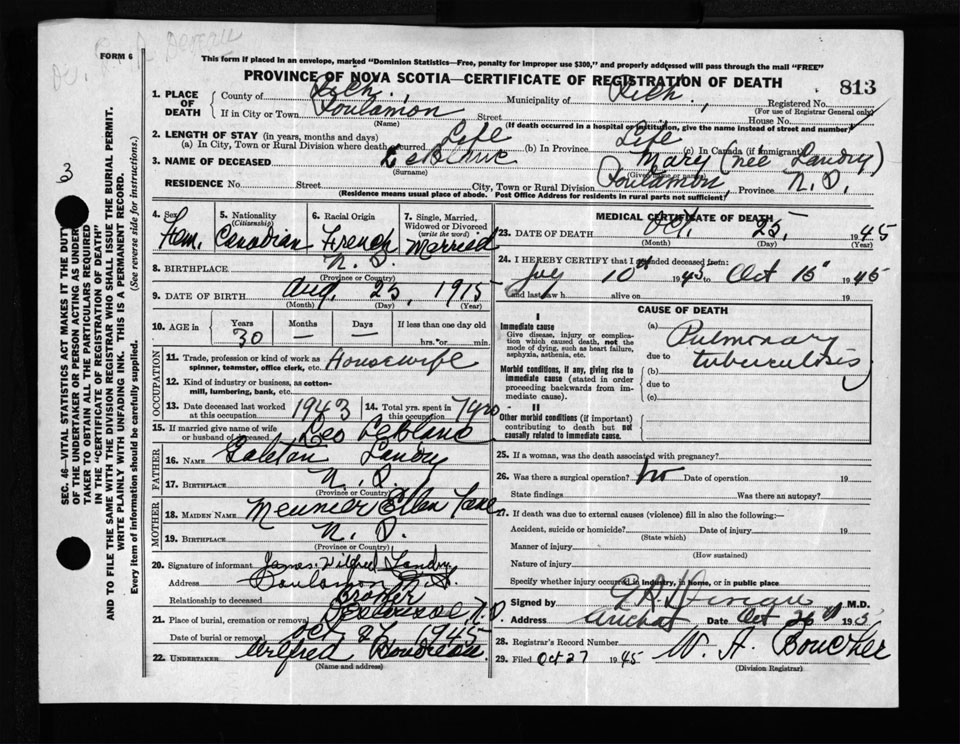 FORM 6
This form if placed in an envelope, marked "Dominion Statistics—Free, penalty for improper use $300," and properly addressed will pass through the mail "FREE"
PROVINCE OF NOVA SCOTIA—CERTIFICATE OF REGISTRATION OF DEATH
813
1. PLACE OF DEATH
County of Rich. Municipality of Rich., Registered No.
(For use of Registrar General only)
If in City or Town Poulamon Street House No.
(Name) (If death occurred in a hospital or institution, give the name instead of street and number)
2. LENGTH OF STAY (in years, months and days)
(a) In City, Town or Rural Division where death occurred Life (b) In Province Life (c) In Canada (if immigrant)
3. NAME OF DECEASED LeBlanc Mary (née Landry)
(Surname) (Given name or names)
RESIDENCE No. Street City, Town or Rural Division Poulamon, Province N.S.
(Residence means usual place of abode. Post Office Address for residents in rural parts not sufficient)
4. Sex Fem.
5. Nationality (Citizenship) Canadian
6. Racial Origin French
7. Single, Married, Widowed or Divorced (write the word) Married
8. BIRTHPLACE N.S.
(Province or Country)
9. DATE OF BIRTH Aug. 25, 1915
(Month) (Day) (Year)
10. AGE in Years 30 Months — Days — If less than one day old hrs. or min.
OCCUPATION
11. Trade, profession or kind of work as spinner, teamster, office clerk, etc. Housewife
12. Kind of industry or business, as cotton-mill, lumbering, bank, etc.
13. Date deceased last worked at this occupation 1943
14. Total yrs. spent in this occupation 7 yrs.
15. If married give name of wife or husband of deceased Leo LeBlanc
FATHER
16. NAME Landry
17. BIRTHPLACE N.S.
(Province or Country)
MOTHER
18. MAIDEN NAME Meunier Ellen Jane
19. BIRTHPLACE N.S.
(Province or Country)
20. Signature of informant James Wilfred Landry
Address Poulamon N.S.
Relationship to deceased Brother
21. Place of burial, cremation or removal N.S.
Date of burial or removal Oct. 27 1945
22. UNDERTAKER Wilfred Boudreau
(Name and address)
MEDICAL CERTIFICATE OF DEATH
23. DATE OF DEATH Oct. 25, 1945
(Month) (Day) (Year)
24. I HEREBY CERTIFY that I attended deceased from:
10th 1945 to Oct 15 1945
and last saw h alive on 19
CAUSE OF DEATH
I
Immediate cause
Give disease, injury or complication which caused death, not the mode of dying, such as heart failure, asphyxia, asthenia, etc.
(a) Pulmonary
due to tuberculosis
Morbid conditions, if any, giving rise to immediate cause (stated in order proceeding backwards from immediate cause).
(b)
due to
(c)
II
Other morbid conditions (if important) contributing to death but not causally related to immediate cause.
25. If a woman, was the death associated with pregnancy?
26. Was there a surgical operation? no Date of operation 19
State findings Was there an autopsy?
27. If death was due to external causes (violence) fill in also the following:—
Accident, suicide or homicide? Date of injury 19
(State which)
Manner of injury
(How sustained)
Nature of injury
Specify whether injury occurred in industry, in home, or in public place
Signed by M.D.
Address Arichat, Date Oct 26 194
28. Registrar's Record Number
29. Filed Oct 27 1945 W. A. Boucher
(Division Registrar)
SEC. 46—VITAL STATISTICS ACT MAKES IT THE DUTY
OF THE UNDERTAKER OR PERSON ACTING AS UNDERTAKER TO OBTAIN ALL THE PARTICULARS REQUIRED
IN THE "CERTIFICATE OF REGISTRATION OF DEATH"
AND TO FILE THE SAME WITH THE DIVISION REGISTRAR WHO SHALL ISSUE THE BURIAL PERMIT.
WRITE PLAINLY WITH UNFADING INK. THIS IS A PERMANENT RECORD.
Every item of information should be carefully supplied. (See reverse side for instructions.)
3